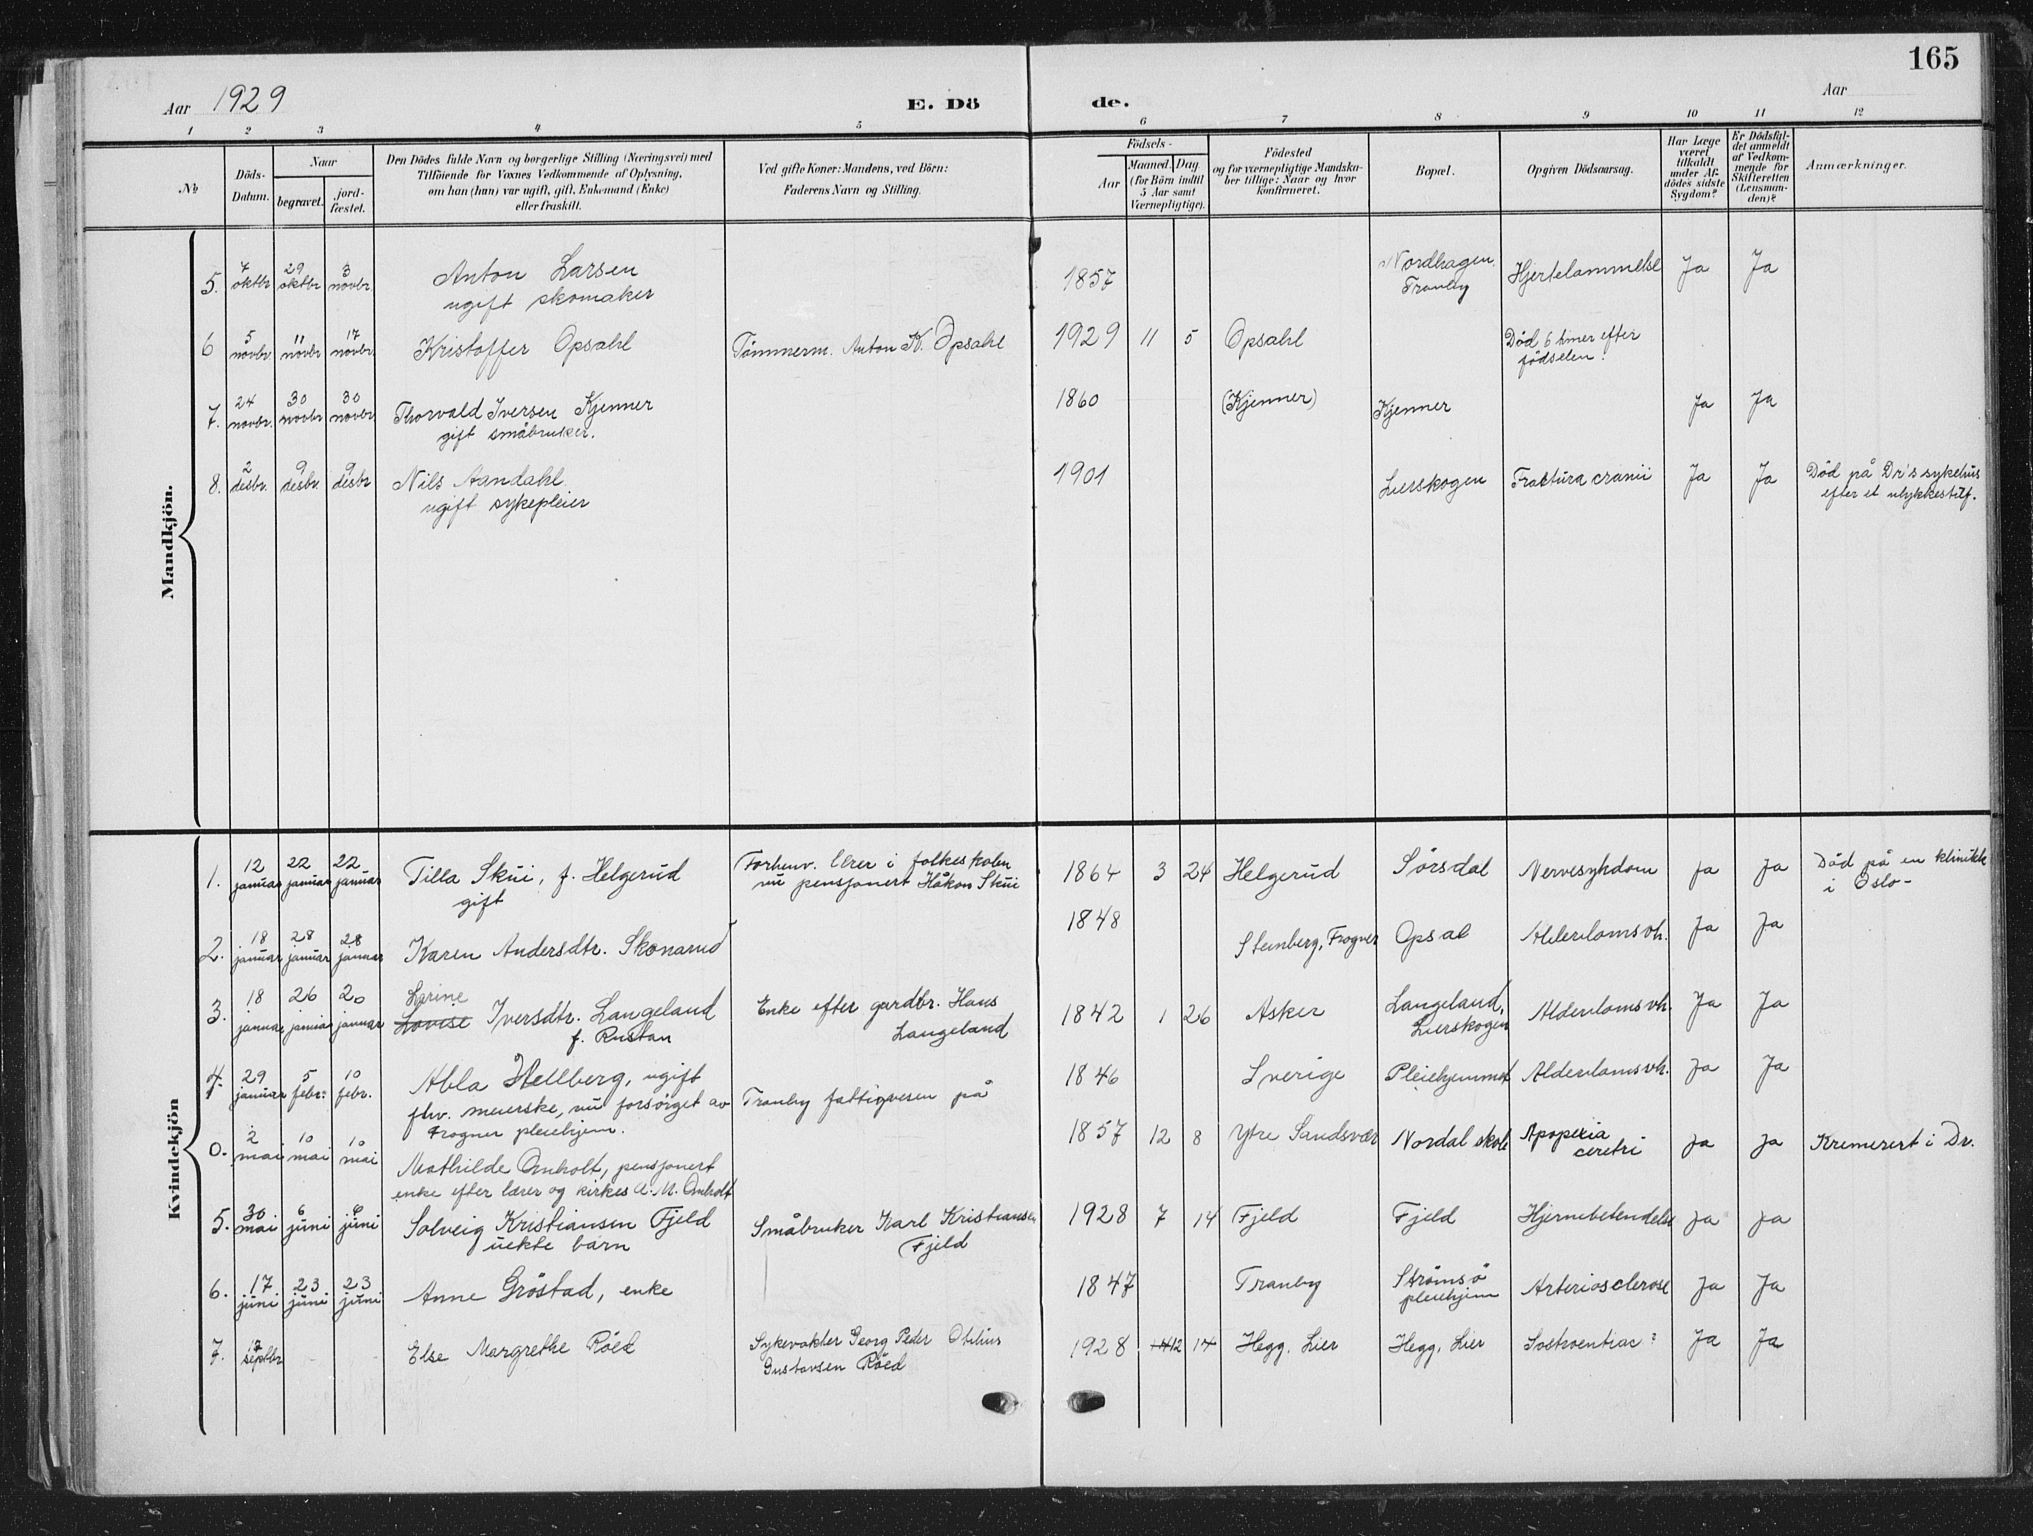 165
Aar 1929
E. Dö
de.
Aar
1 2 3 4 5 6 7 8 9 10 11 12
No
Döds-
Datum.
Naar
begravet.
jord-
fæstet.
Den Dödes fulde Navn og borgerlige Stilling (Næringsvei) med
Tilföiende for Voxnes Vedkommende af Oplysning,
om han (hun) var ugift, gift, Enkemand (Enke)
eller fraskilt.
Ved gifte Koner: Mandens, ved Börn:
Faderens Navn og Stilling.
Födsels-
Aar
Maaned. Dag
(for Börn indtil
5 Aar samt
Værnepligtige).
Födested
og for værnepligtige Mandska-
ber tillige: Naar og hvor
konfirmeret.
Bopæl.
Opgiven Dödsaarsag.
Har Læge
været
tilkaldt
under Af-
dödes sidste
Sygdom?
Er Dödsfal-
det anmeldt
af Vedkom-
mende for
Skifteretten
(Lensman-
den)?
Anmærkninger.
Mandkjön.
5. 7 oktbr 29 oktbr 3 novbr Anton Larsen 1857 Nordhagen. Hjertelammelse Ja Ja
ugift skomaker Tranby
6 5 novbr. 11 novbr 17 novbr. Kristoffer Opsahl Tömmerm. Anton K. Opsahl 1929 11 5 Opsahl Död 6 timer efter
födselen.
7. 24 novbr. 30 novbr 30 novbr Thorvald Iversen Kjenner 1860 (Kjenner) Kjenner Ja Ja
gift småbruker.
8. 2 desbr. 9 desbr. 9 desbr Nils Aandahl 1901 Lierskogen Fractura cranii Ja Ja Död på Dr's sykehus
ugift sykepleier efter et ulykkestilf.
Kvindekjön
1. 12 januar 22 januar 22 januar Tilla Skui, f. Helgerud Forhenv. lærer i folkeskolen 1864 3 24 Helgerud Sörsdal Nervesykdom Ja Ja Död på en klinikk
gift nu pensjonert Håkon Skui i Oslo-
2. 18 januar 28 januar 28 januar Karen Andersdtr. Skonarud 1848 Stenberg, Frogner Opsal Alderdomssvh. Ja Ja
3. 18 januar 26 januar 20 januar Larine
Lovise Iversdtr. Langeland Enke efter gardbr. Hans 1842 1 26 Asker Langeland, Alderdomssvh. Ja Ja
f. Rustan Langeland Lierskogen
4. 29 januar 5 febr. 10 febr. Abla Hellberg, ugift 1846 Sverige Pleiehjemmet Alderdomssvh. Ja Ja
fhv. meierske, nu forsörget av Tranby fattigvesen på
Frogner pleiehjem.
0. 2 mai 10 mai 10 mai Mathilde Omholt, pensjonert 1857 12 8 Ytre Sandsvær Nordal skole Apopexia Ja Ja Kremerert i Dr.
enke efter lærer og kirkes. A. M. Omholt ceretri
5. 30 mai 6 juni 6 juni Solveig Kristiansen Fjeld Småbruker Karl Kristiansen 1928 7 14 Fjeld Fjeld Hjernebetendelse Ja Ja
uekte barn Fjeld
6. 17 juni 23 juni 23 juni Anne Gröstad, enke 1847 Tranby Strömsö Arteriosclerose Ja Ja
pleiehjem
7. septbr Else Margrethe Röed Sykevokter Georg Peder Otilius 1928 12 Hegg, Lier Hegg, Lier Ja Ja
Gustavsen Röed